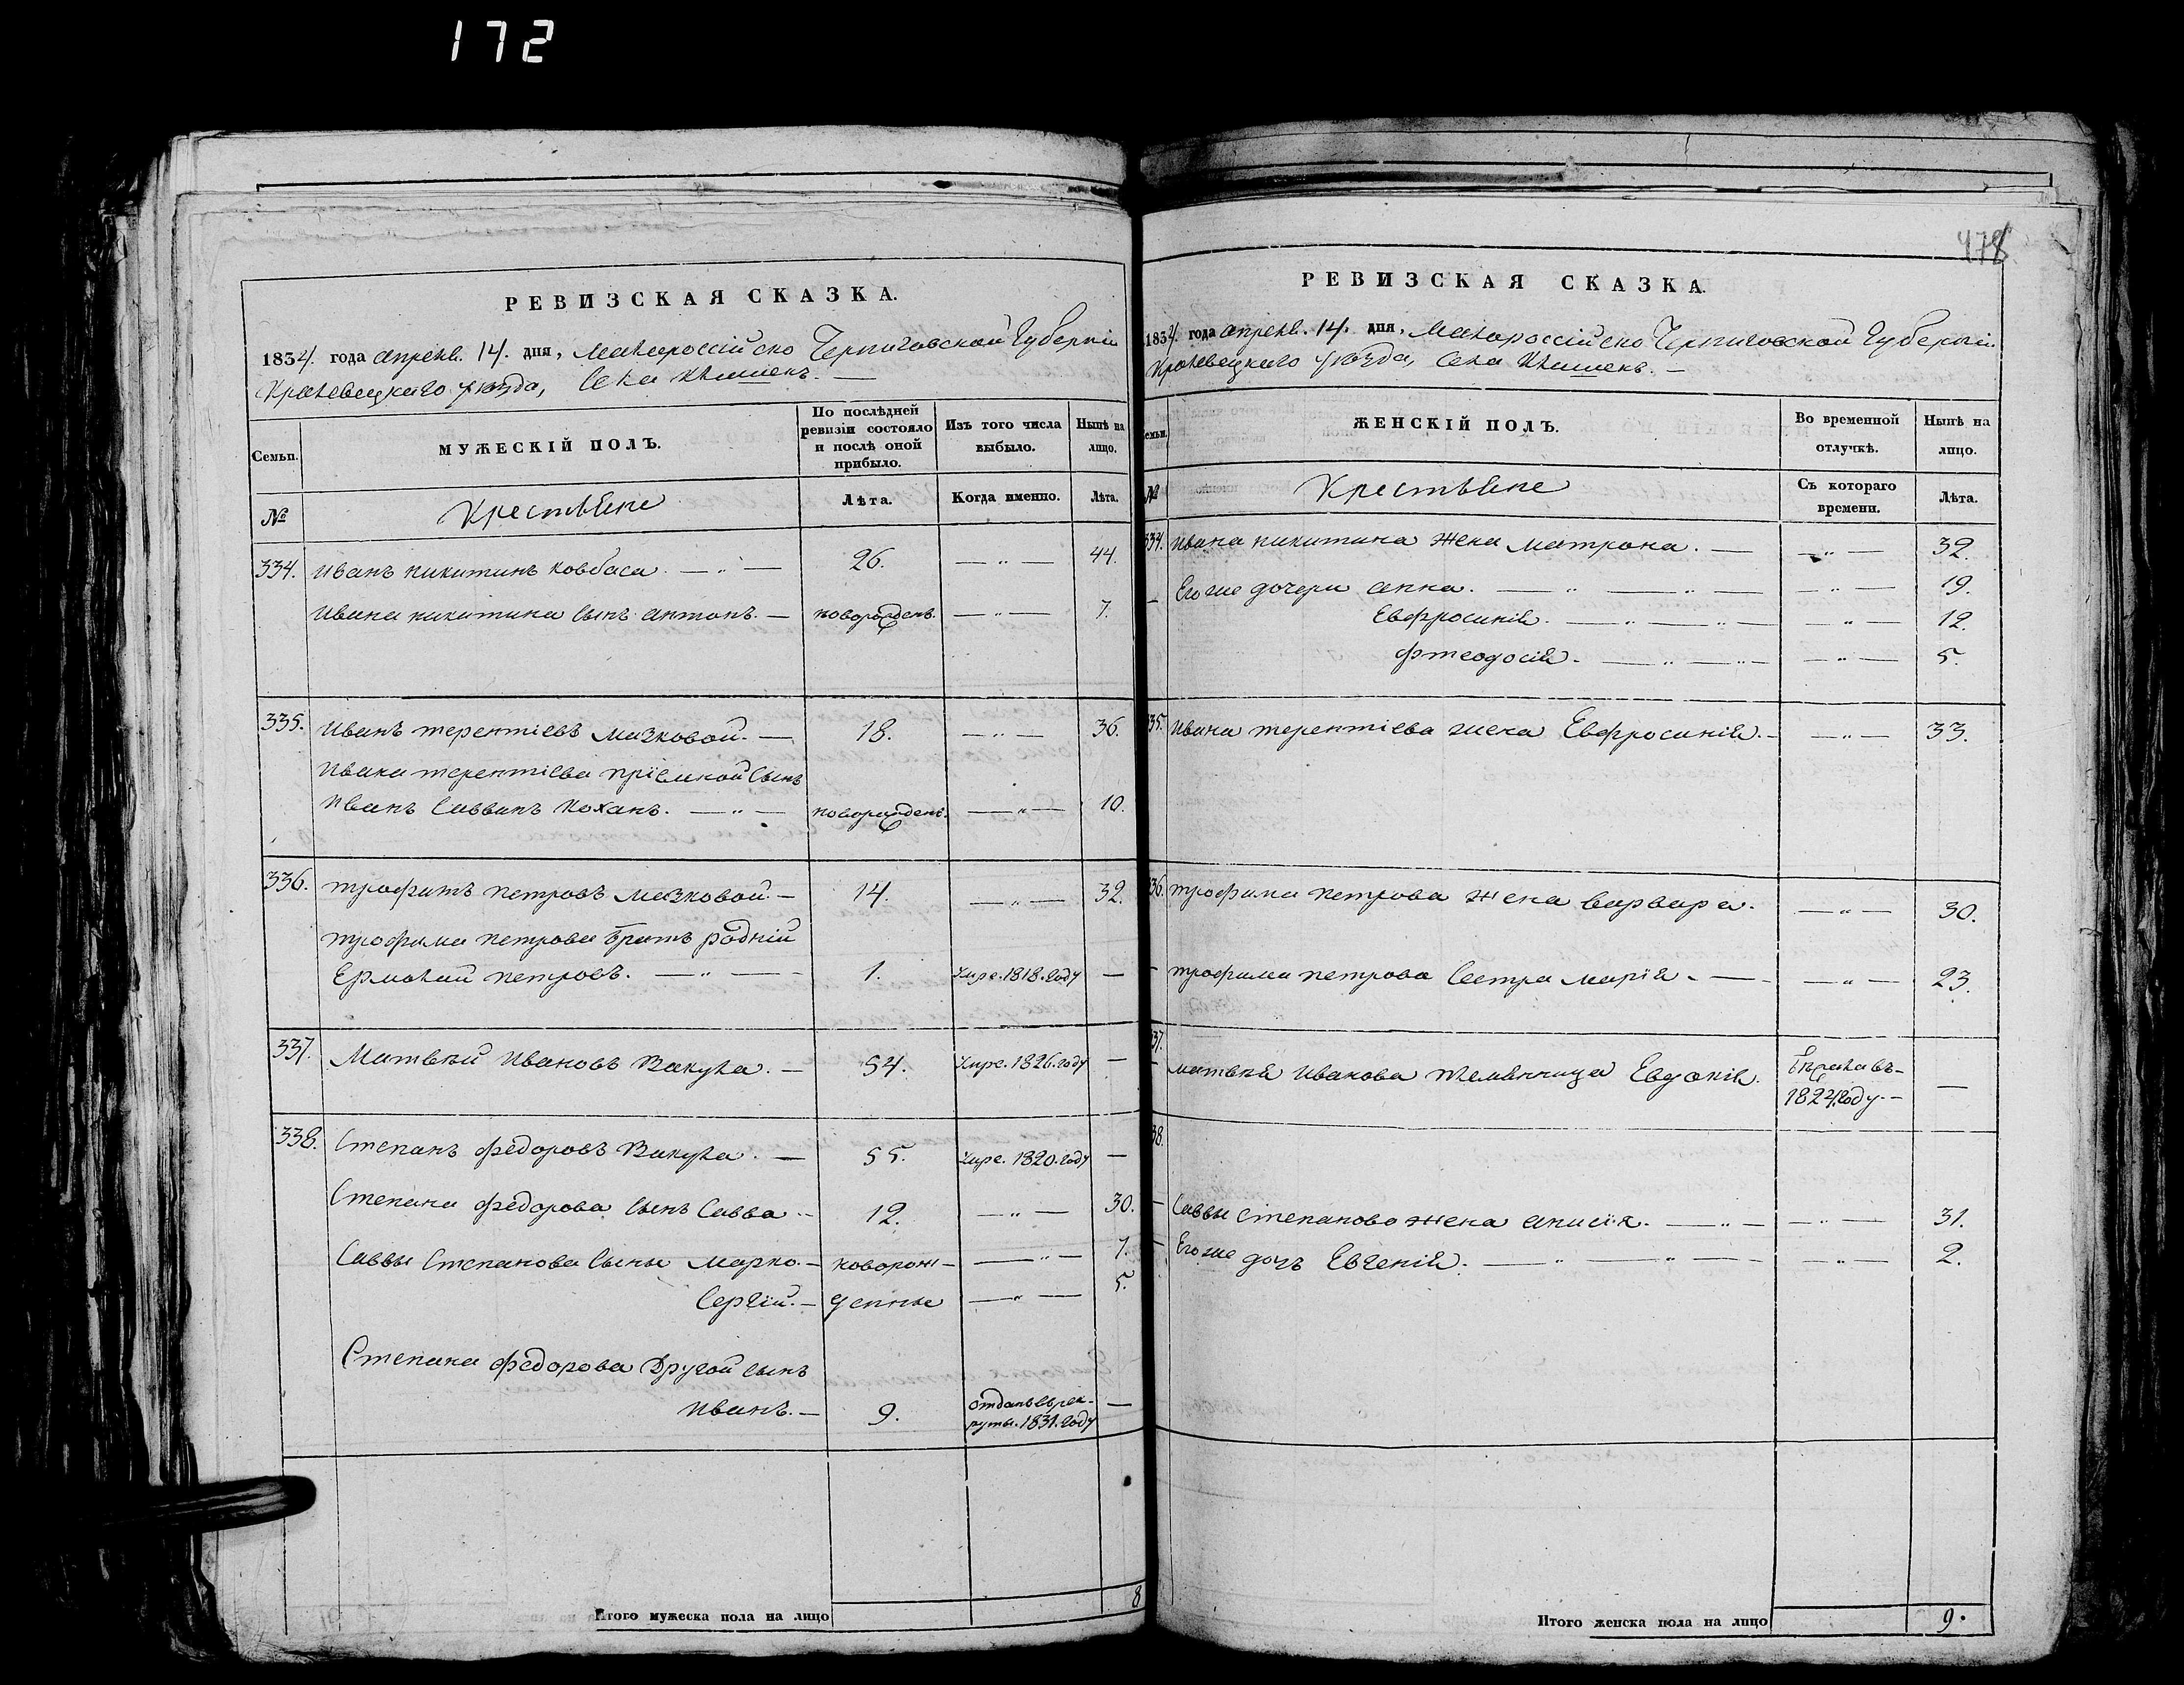 172
478
РЕВИЗСКАЯ СКАЗКА.
1834. года апреля. 14. дня, Малороссійско Черниговской Губерніи
Кролевецкаго уѣзда, Села Клишекъ. —
Семьи.
МУЖЕСКІЙ ПОЛЪ.
По послѣдней ревизіи состояло и послѣ оной прибыло.
Изъ того числа выбыло.
Нынѣ на лицо.
№
Крестьяне
Лѣта.
Когда именно.
Лѣта.
334. Иванъ никитинъ ковбаса. — " — 26. — " — 44.
Ивана никитина сынъ антонъ. — новорожденъ. — " — 7.
335. Иванъ терентіевъ мазковой. — 18. — " — 36.
Ивана терентіева пріемной сынъ
Иванъ Саввинъ Коханъ. — " — новорожденъ. — " — 10.
336. трофимъ петровъ мазковой — 14. — " — 32.
трофима петрова братъ родній
Ермолай петровъ. — " — 1. умре. 1818. году —
337. Матвѣй Ивановъ Вакула. — 54. умре. 1826. году —
338. Степанъ федоровъ Вакула. — 55. умре. 1820. году —
Степана федорова сынъ Савва. — 12. — " — 30.
Саввы Степанова сыны марко. — новорож- — " — 7.
Сергій. — денные — " — 5.
Степана федорова Другой сынъ
Иванъ. — 9. отданъ въ рек-
руты. 1831. году —
Итого мужеска пола на лицо 8
РЕВИЗСКАЯ СКАЗКА.
1834. года апреля. 14. дня, Малороссійско Черниговской Губерніи.
Кролевецкаго уѣзда, Села Клишекъ. —
Семьи.
ЖЕНСКІЙ ПОЛЪ.
Во временной отлучкѣ.
Нынѣ на лицо.
№
Крестьяне
Съ котораго времени.
Лѣта.
334. Ивана никитина жена матрона. — — " — 32.
— Его же дочери анна. — " — " — — " — 19.
Евфросинія. — " — " — — " — 12.
фтеодосія. — " — " — — " — 5.
35. Ивана терентіева жена Евфросинія. — — " — 33.
36. трофима петрова жена варвара. — " — 30.
— трофима петрова сестра марія. — — " — 23.
37.
— матвѣя Иванова племянница Евдокія.
1824 году. — —
38.
— Саввы степанова жена анисія. — " — — " — 31.
— Его же дочъ Евгенія. — " — " — — " — 2.
Итого женска пола на лицо 9.